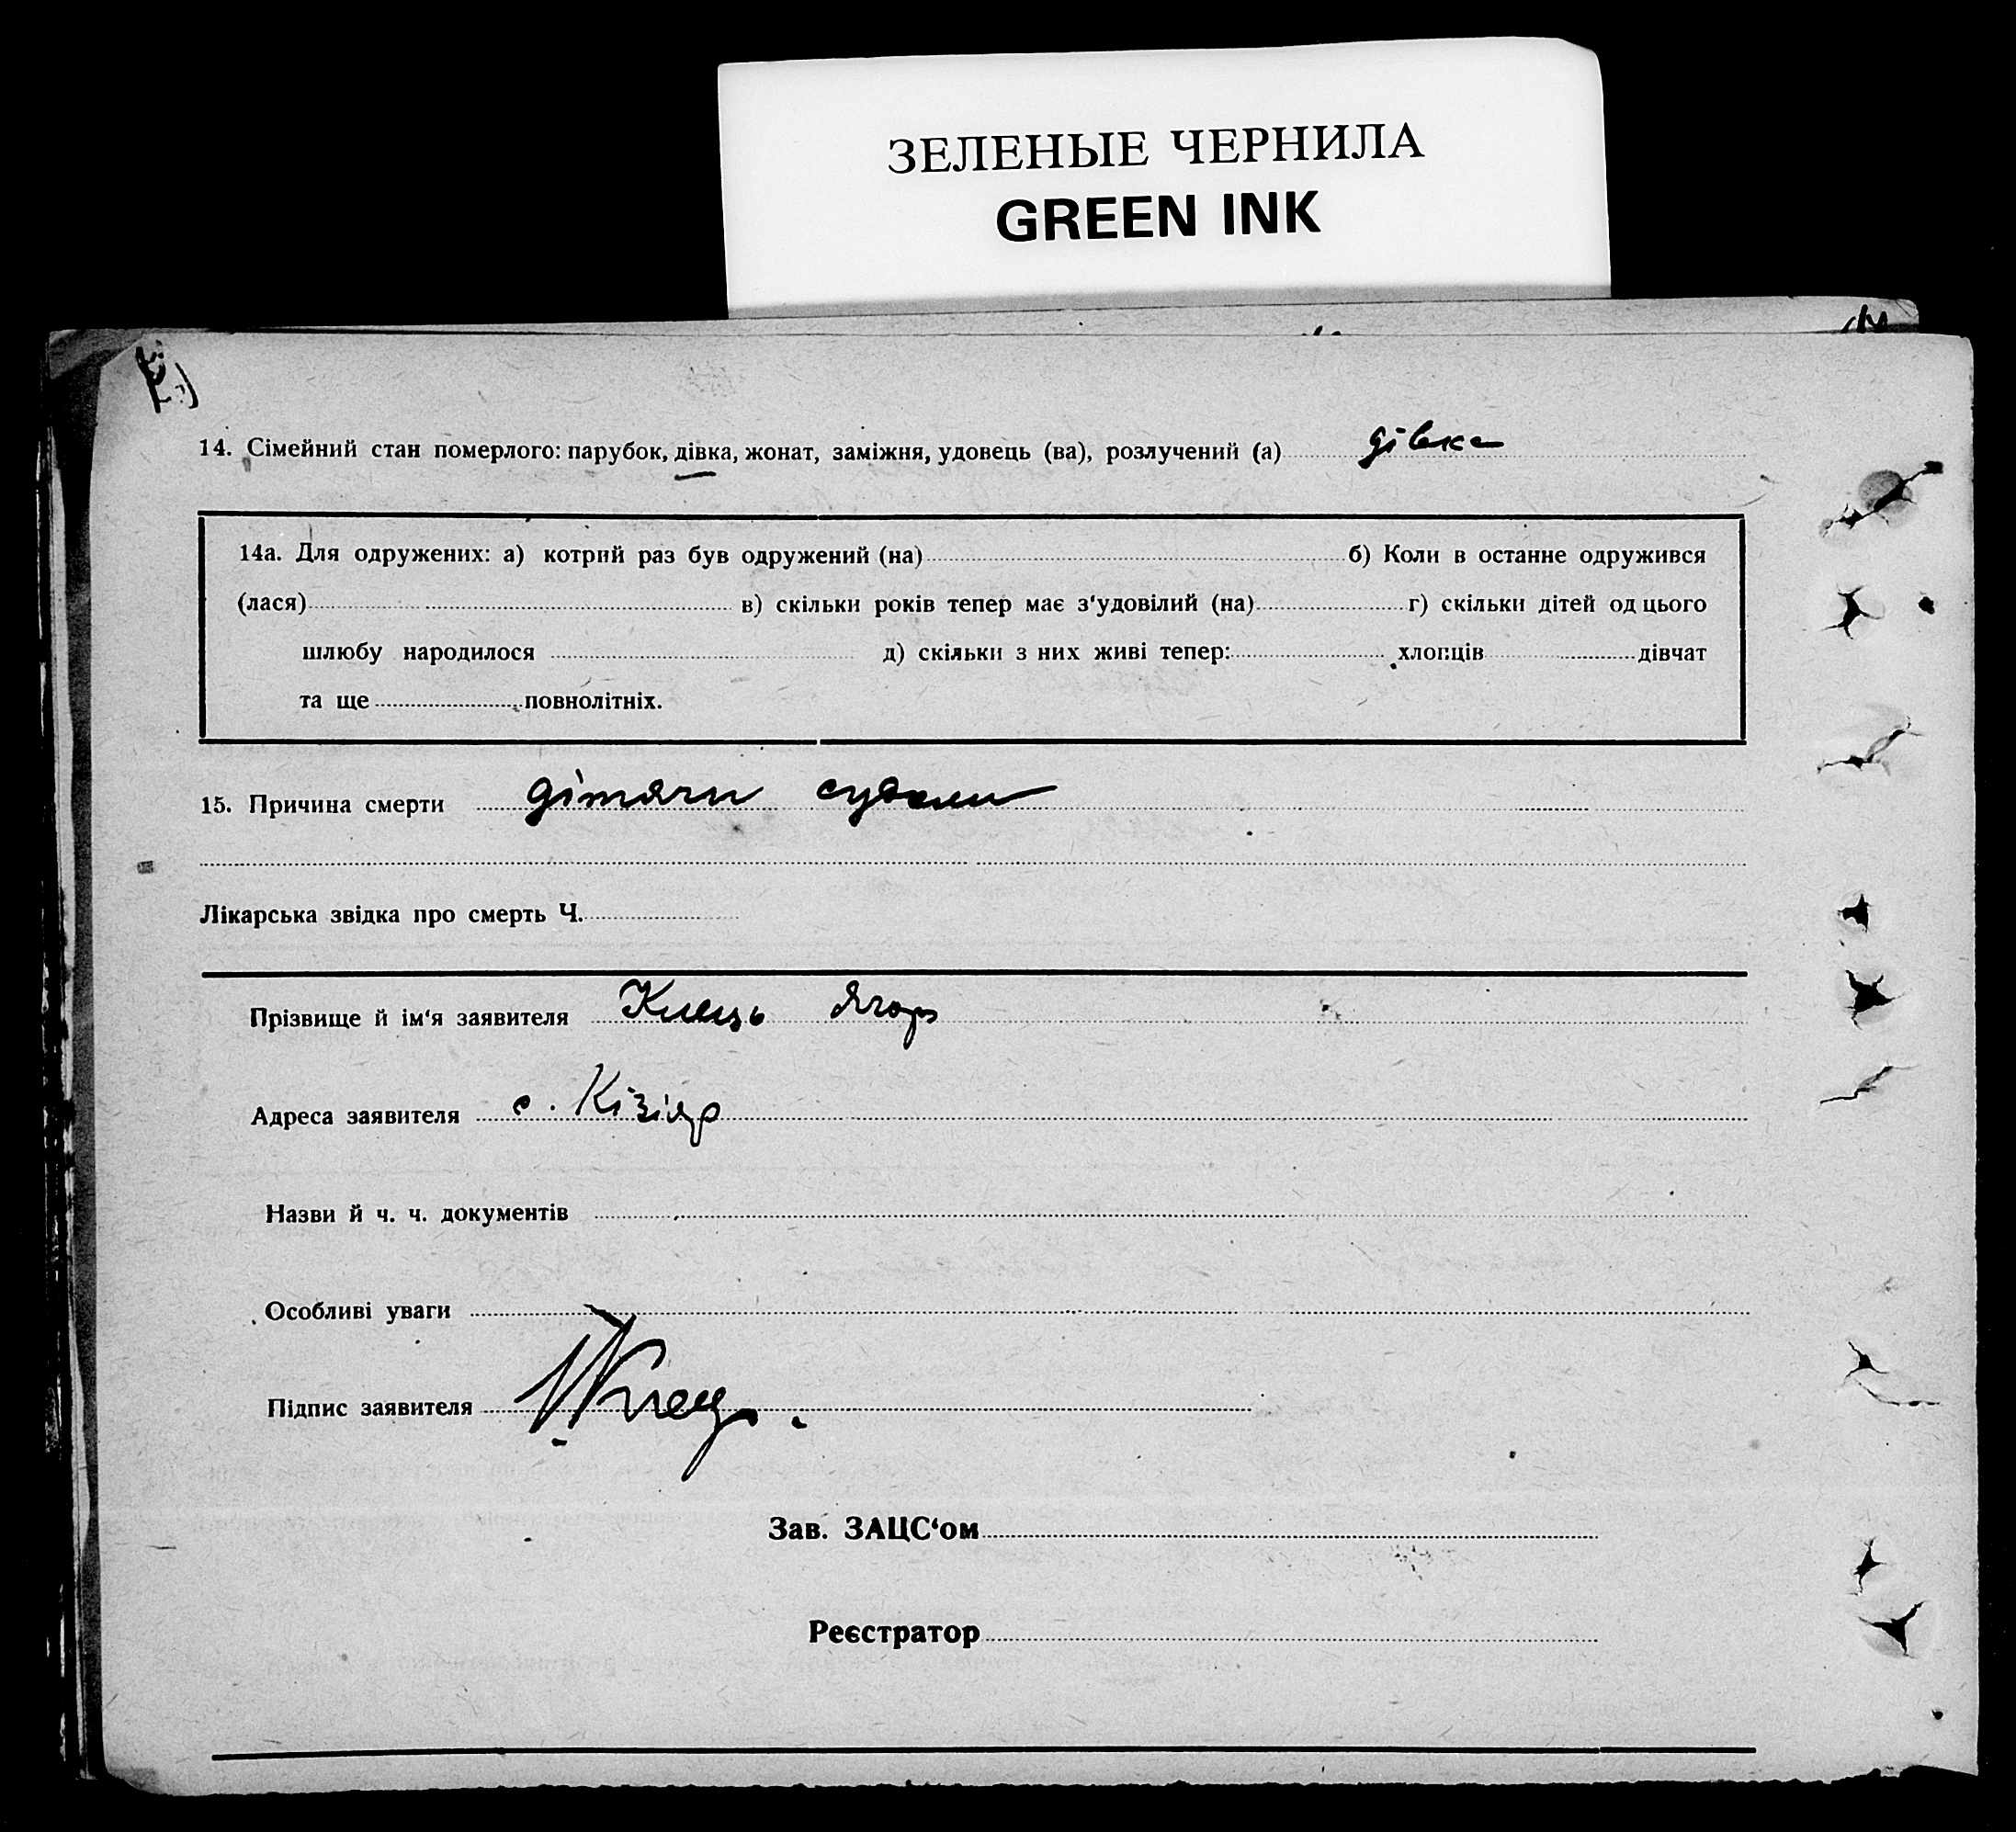 ЗЕЛЕНЫЕ ЧЕРНИЛА
GREEN INK
14. Сімейний стан померлого: парубок, дівка, жонат, заміжня, удовець (ва), розлучений (а) дівка
14а. Для одружених: а) котрий раз був одружений (на) б) Коли в останне одружився
(лася) в) скільки років тепер має з'удовілий (на) г) скільки дітей од цього
шлюбу народилося д) скільки з них живі тепер: хлопців дівчат
та ще повнолітніх.
15. Причина смерти дітячи
Лікарська звідка про смерть Ч.
Прізвище й ім'я заявителя Клець Ягор
Адреса заявителя с. Кізіяр
Назви й ч. ч. документів
Особливі уваги
Підпис заявителя Клець
Зав. ЗАЦС'ом
Реєстратор